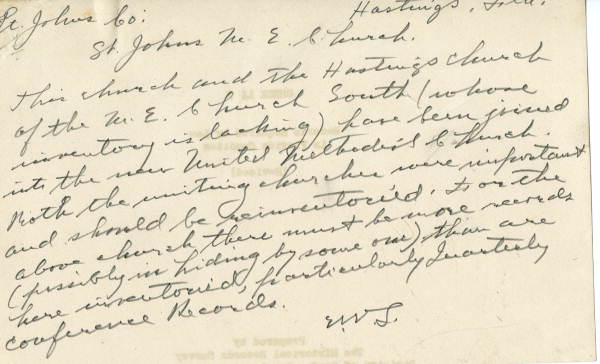 St. Johns Co. Hastings, Fla.
St. Johns M. E. Church.
This church and the Hastings church
of the M. E. Church South (whose
inventory is lacking) have been joined
into the new United Methodist Church.
Both the uniting churches were important
and should be reinventoried. For the
above church there must be more records
(possibly in hiding by some one) than are
here inventoried, particularly Quarterly
Conference Records.
EWL.
Prepared by
The Historical Records Survey